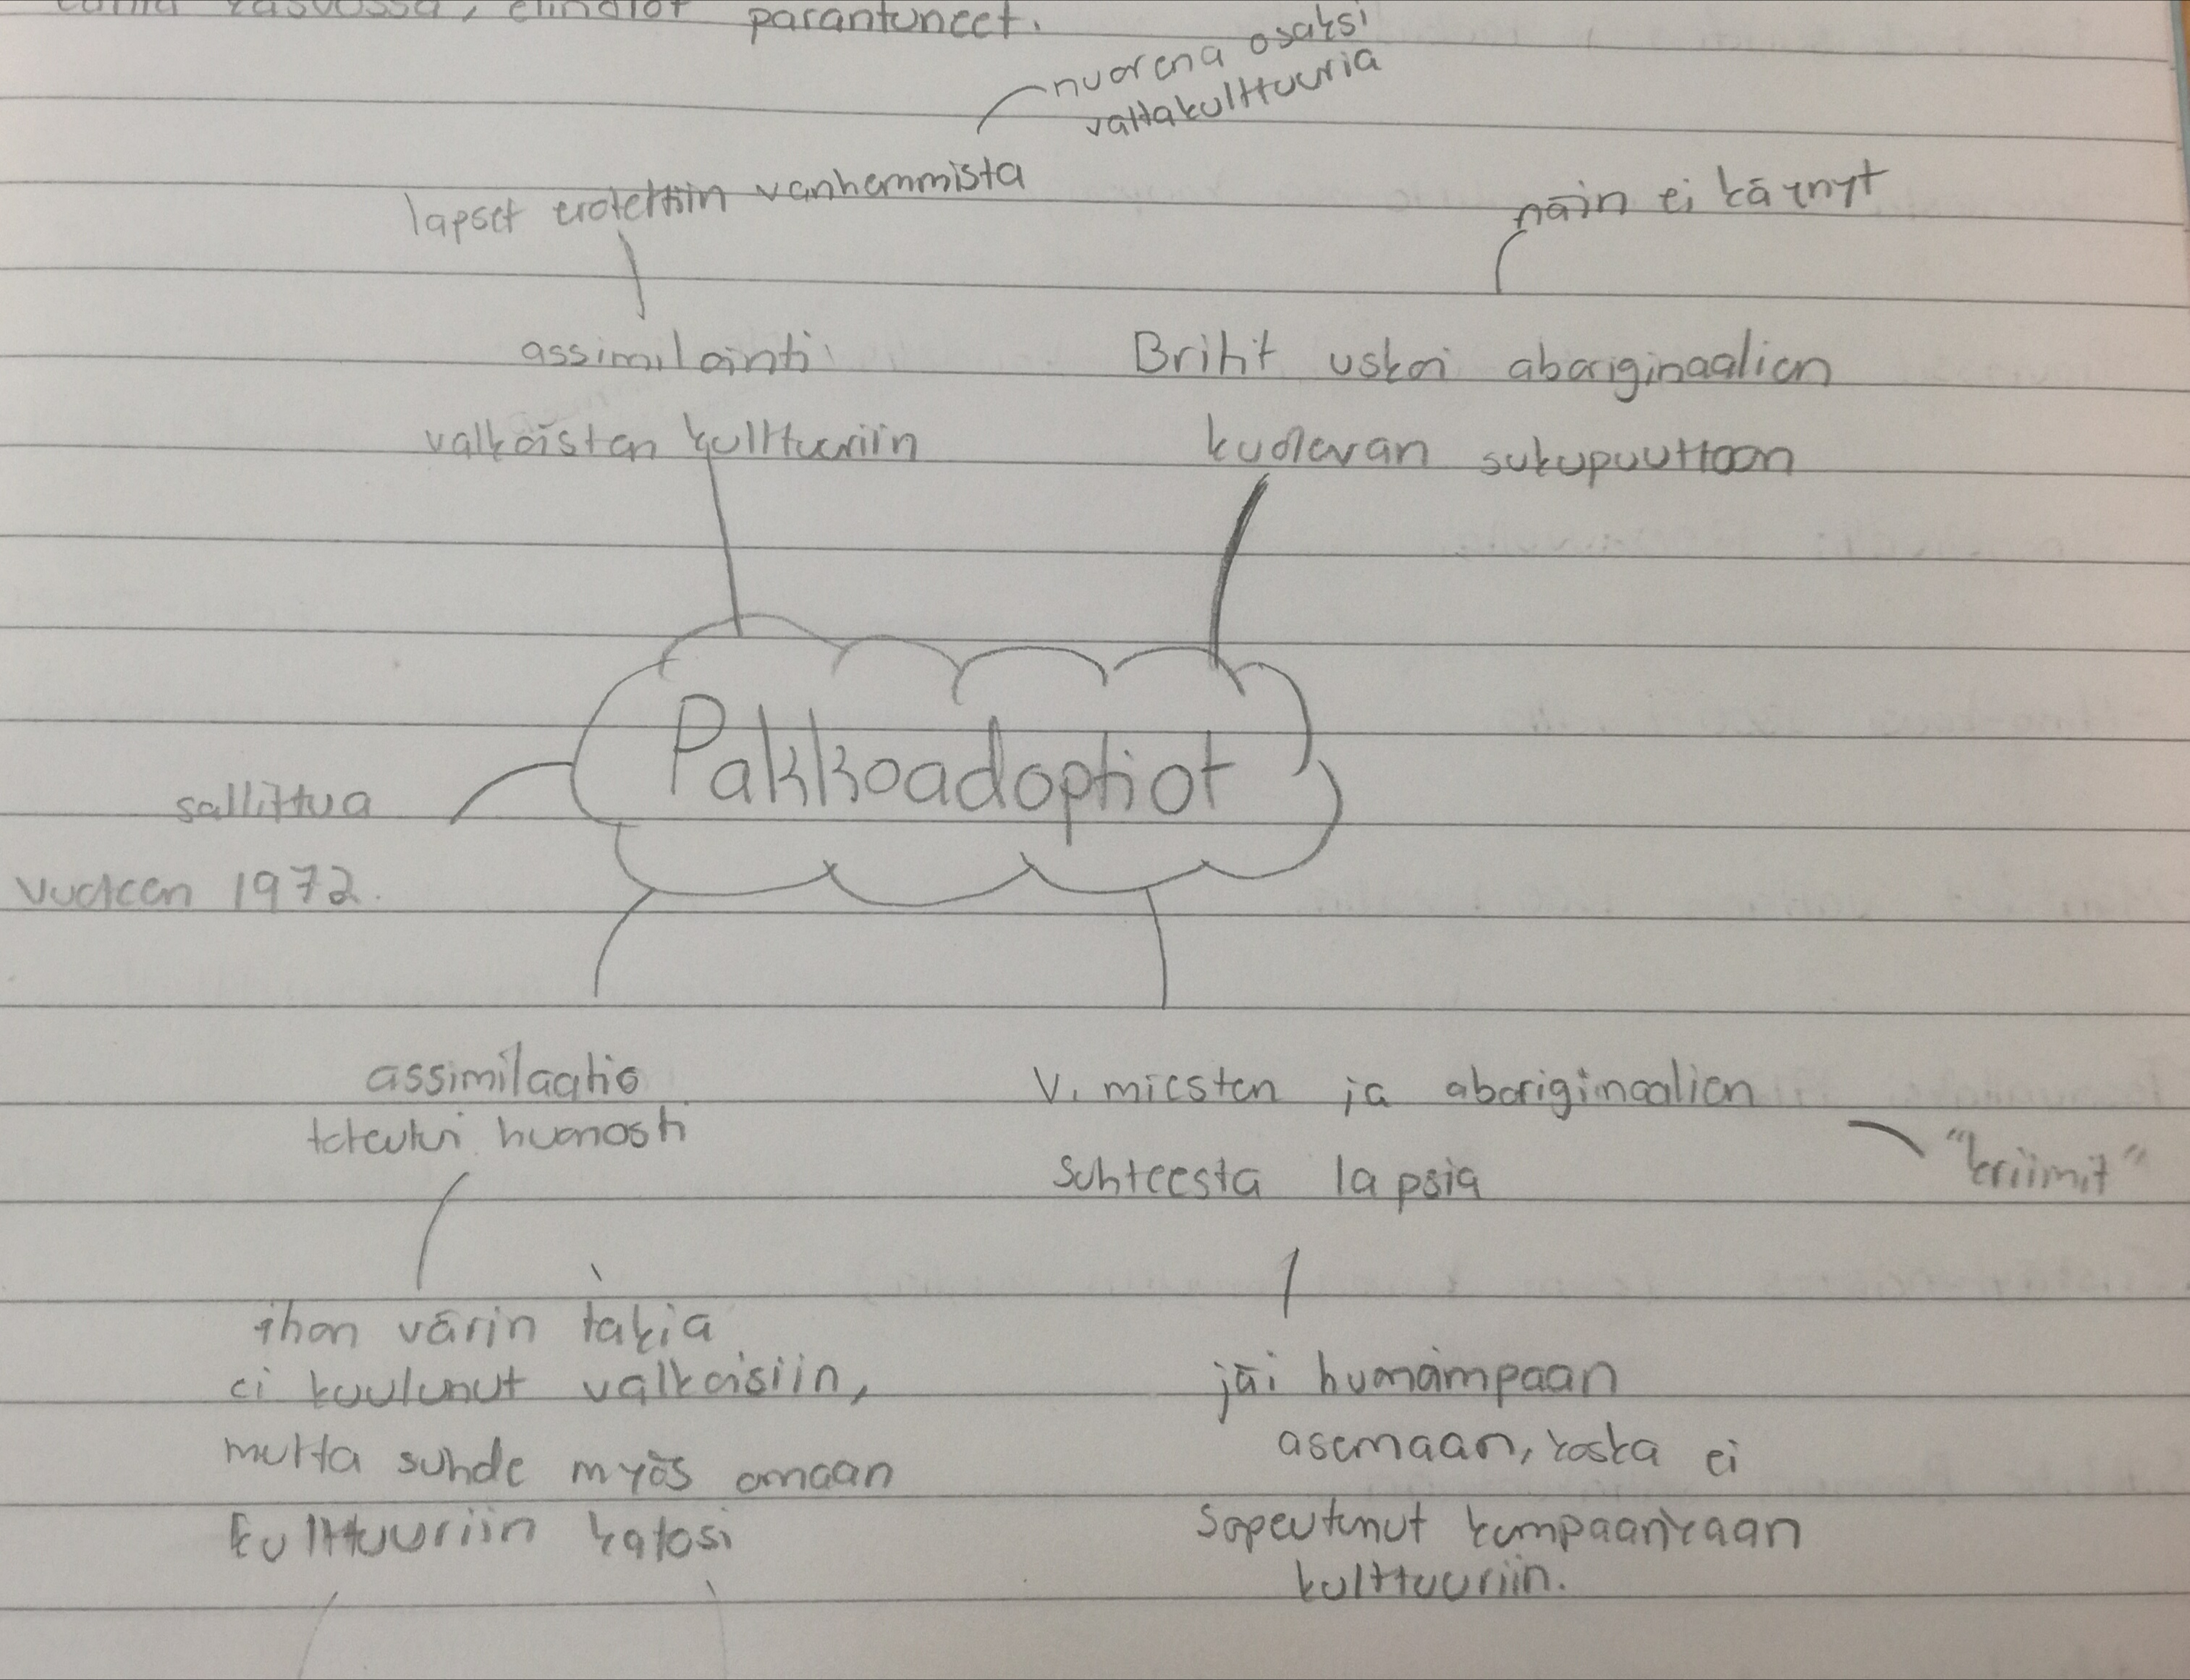 kasvossa, elinolot parantuneet.
nuorena osaksi
valtakulttuuria
lapset erotettiin vanhemmista
näin ei käynyt
assimilointi
valkoisten kulttuuriin
Britit uskoi aboriginaalien
kuolevan sukupuuttoon
Pakkoadoptiot
sallittua
vuoteen 1972.
assimilaatio
toteutui huonosti
V. miesten ja aboriginaalien
suhteesta lapsia
"kriimit"
ihon värin takia
ei kuulunut valkoisiin,
mutta suhde myös omaan
kulttuuriin katosi
jäi huonoimpaan
asemaan, koska ei
sopeutunut kumpaankaan
kulttuuriin.